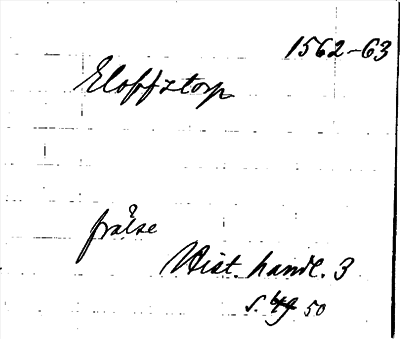 1562-63
Eloffztorp
frälse
Hist. handl. 3
S. 50